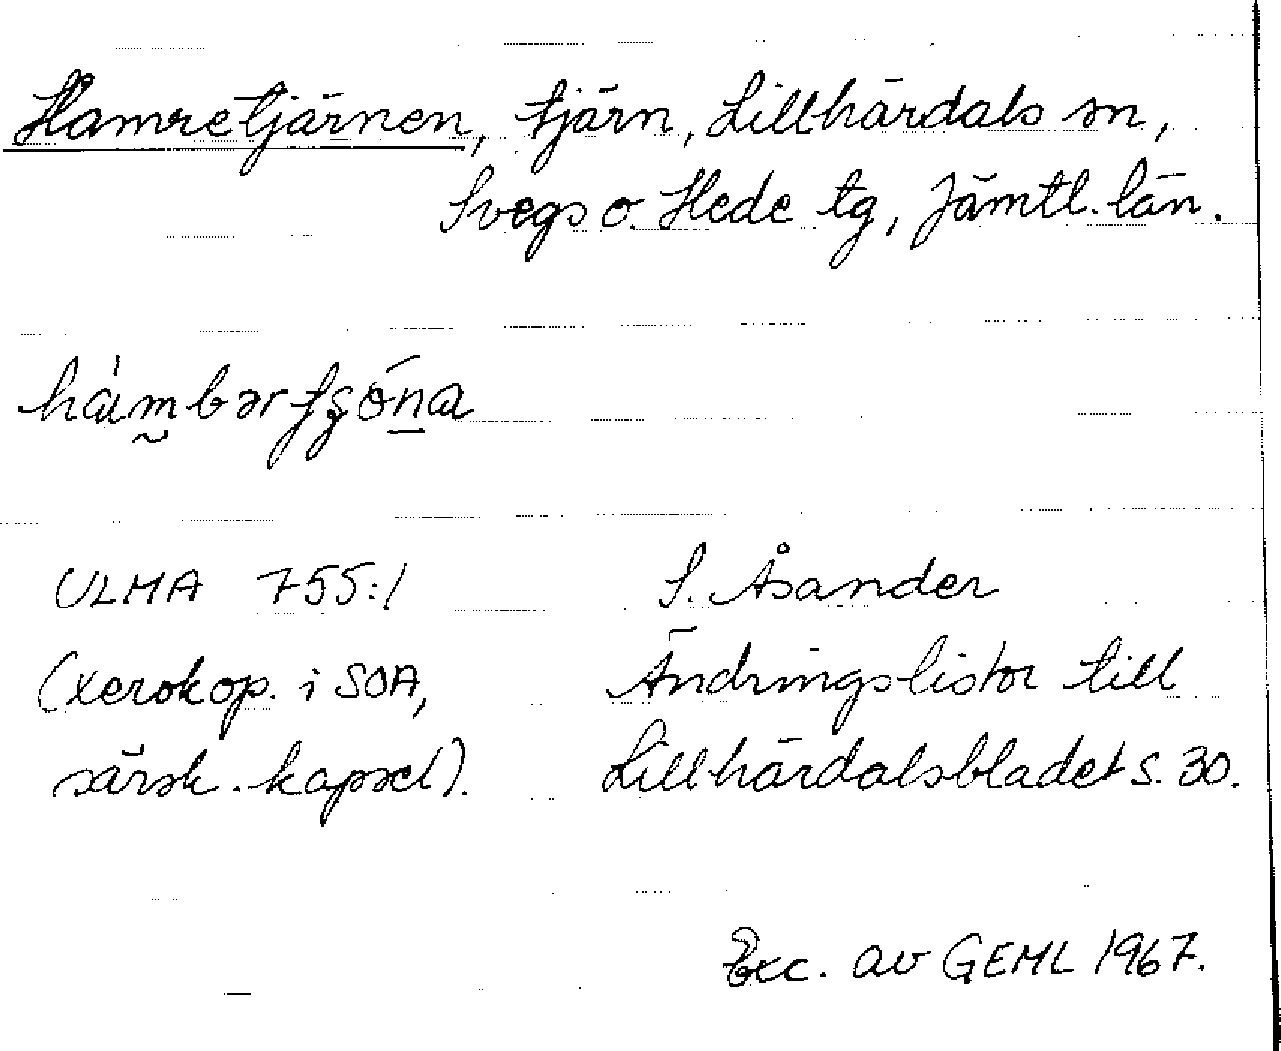 Hamretjärnen, tjärn, Lillhärdals sn,
Svegs o. Hede tg, Jämtl. län.
ULMA 755:1
S. Åsander
(xerokop. i SOA,
Ändringslistor till
särsk. kapsel).
Lillhärdalsbladet s. 30.
Exc. av GEML 1967.